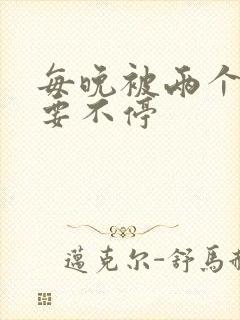 每晚被两个
要不停
邁克尔-舒馬赫